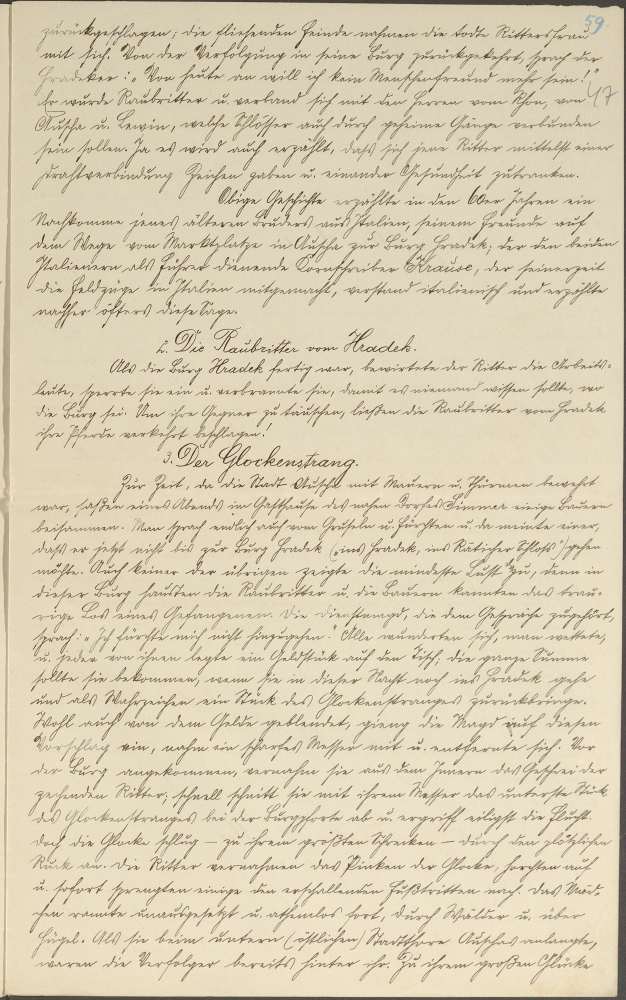 59
zurückgeschlagen; die fliehenden Feinde nahmen die todte Rittersfrau
mit sich. Von der Verfolgung in seine Burg zurückgekehrt, sprach der
Hradeker: „Von heute an will ich kein Menschenfreund mehr sein!“
Er wurde Raubritter u. verband sich mit den Herren vom Schon, von
47
Auscha u. Lewin, welche Schlösser auch durch geheime Gänge verbunden
sein sollen. Ja es wird auch erzählt, dass sich jene Ritter mittelst einer
Drahtverbindung Zeichen gaben u. einander Gesundheit zutranken.
Obige Geschichte erzählte in den 60er Jahren ein
Nachkomme jenes älteren Bruders aus Italien, seinem Freunde auf
dem Wege vom Marktplatze in Auscha zur Burg Hradek; der den beiden
Italienern als Führer dienende Kornschreiber Krause, der seinerzeit
die Feldzüge in Italien mitgemacht, verstand italienisch und erzählte
nachher öfters diese Sage.
2. Die Raubritter vom Hradek.
Als die Burg Hradek fertig war, bewirtete der Ritter die Arbeits-
leute, sperrte sie ein u. verbrannte sie, damit es niemand wissen sollte, wo
die Burg sei. Um ihre Gegner zu täuschen, ließen die Raubritter vom Hradek
ihre Pferde verkehrt beschlagen!
3. Der Glockenstrang.
Zur Zeit, da die Stadt Auscha mit Mauern u. Thürmen bewehrt
war, saßen eines Abends im Gasthause des nahen Dorfes Simmer einige Bauern
beisammen. Man sprach endlich auch vom Gruseln u. Fürchten u. da meinte einer,
dass er jetzt nicht bis zur Burg Hradek („ins Hradek, ins Räticher Schloß“) gehen
möchte. Auch keiner der übrigen zeigte die mindeste Lust dazu, denn in
dieser Burg hausten die Raubritter u. die Bauern kannten das trau-
rige Los eines Gefangenen. Die Dienstmagd, die dem Gespräche zugehört,
sprach: „Ich fürchte mich nicht hinzugehen!“ Alle wunderten sich, man wettete,
u. jeder von ihnen legte ein Geldstück auf den Tisch; die ganze Summe
sollte sie bekommen, wenn sie in dieser Nacht noch ins Hradek gehe
und als Wahrzeichen ein Stück des Glockenstranges zurückbringe.
Wohl auch von dem Gelde geblendet, gieng die Magd auf diesen
Vorschlag ein, nahm ein scharfes Messer mit u. entfernte sich. Vor
der Burg angekommen, vernahm sie aus dem Innern das Geschrei der
zechenden Ritter; schnell schnitt sie mit ihrem Messer das unterste Stück
des Glockenstranges bei der Burgpforte ab u. ergriff eiligst die Flucht.
Doch die Glocke schlug – zu ihrem größten Schrecken – durch den plötzlichen
Ruck an. Die Ritter vernahmen das Pinken der Glocke, horchten auf
u. sofort sprengten einige den erschallenden Fußtritten nach. Das Mäd-
chen rannte unausgesetzt u. athemlos fort, durch Wälder u. über
Hügel. Als sie beim untern (östlichen) Stadtthore Auschas anlangte,
waren die Verfolger bereits hinter ihr. Zu ihrem großen Glücke